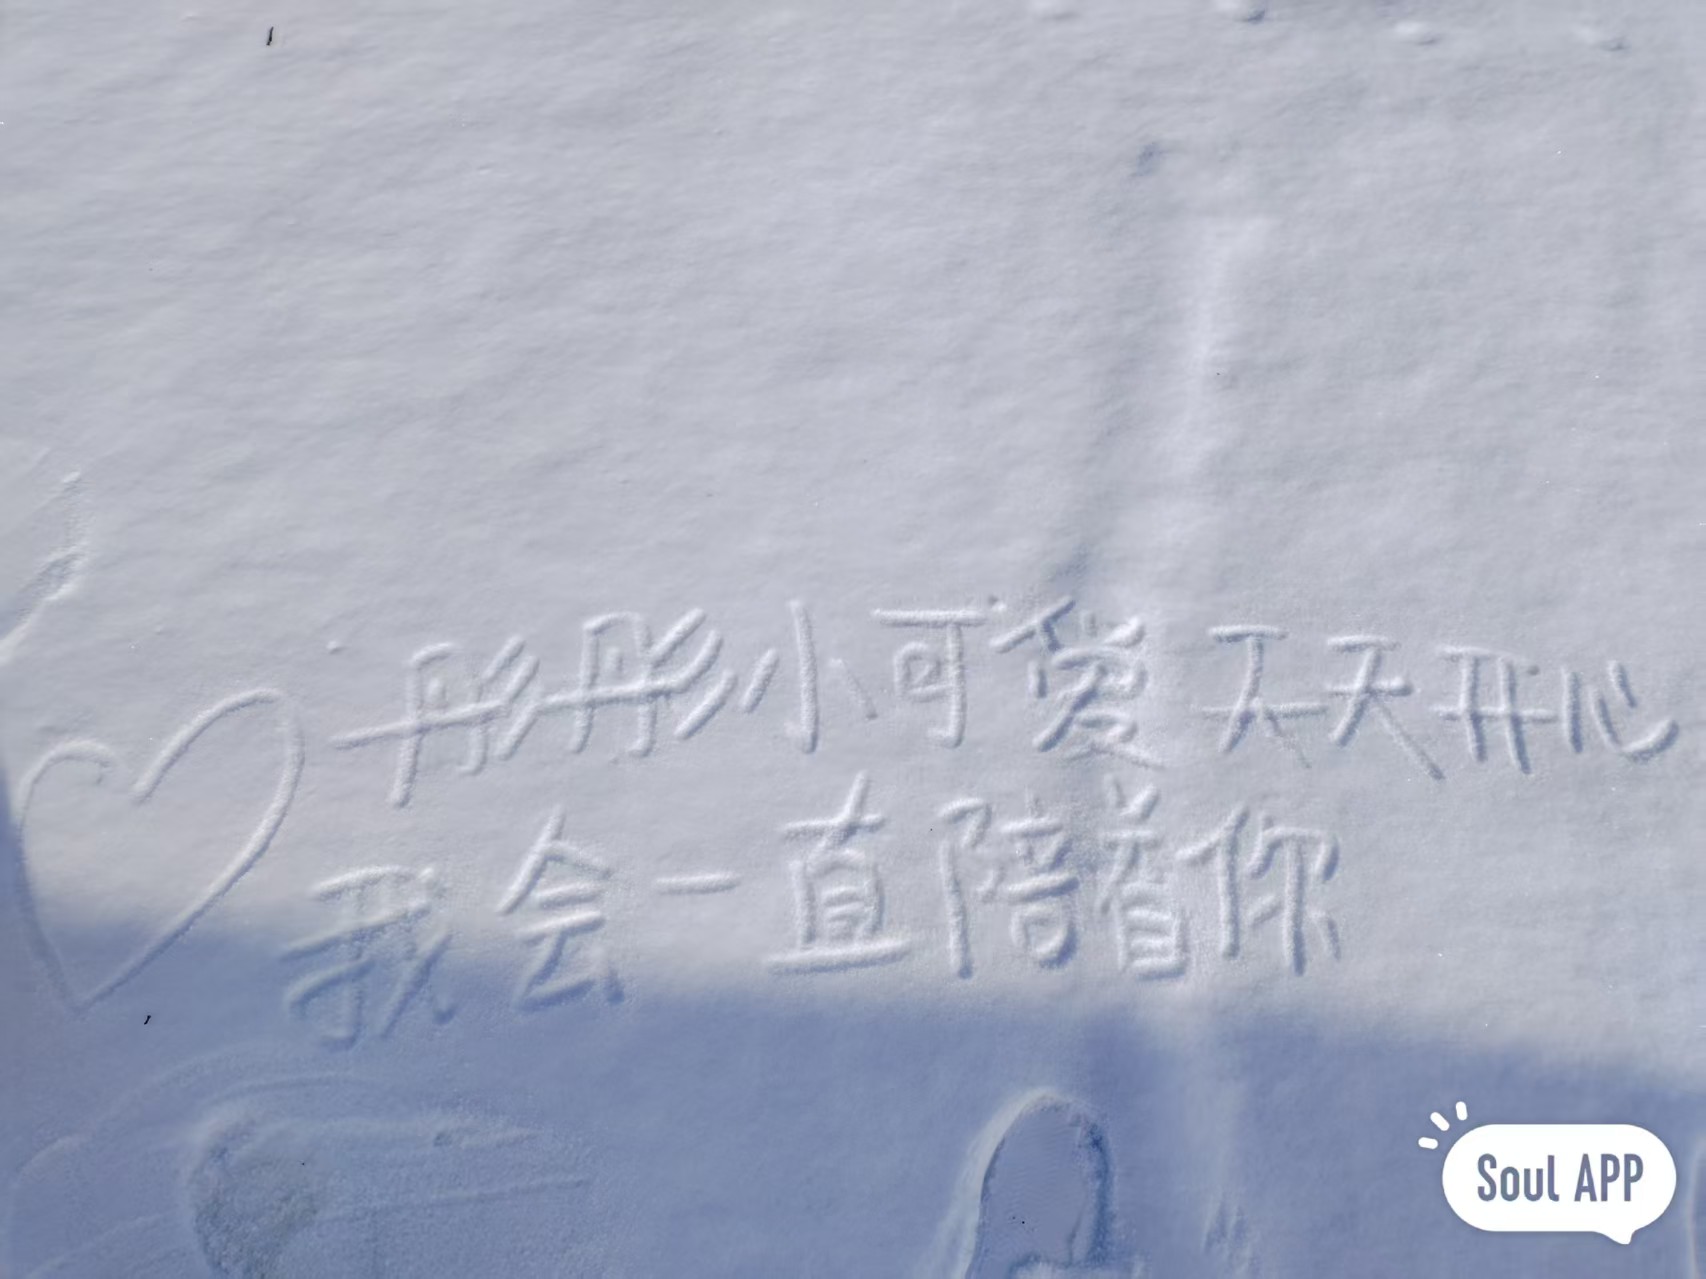 彤彤小可爱 天天开心
我会一直陪着你
Soul APP